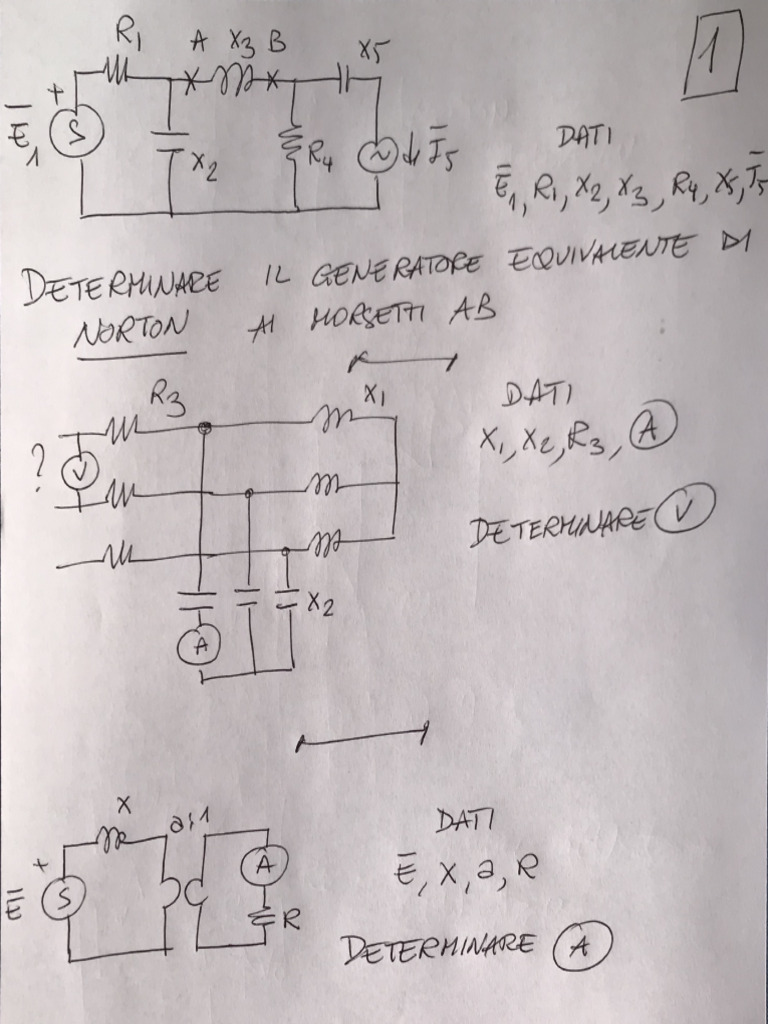 1
R1 A X3 B X5
+
E̅1 S X2 R4 ~ J̅5
DATI
E̅1, R1, X2, X3, R4, X5, J̅5
DETERMINARE IL GENERATORE EQUIVALENTE DI
NORTON AI MORSETTI AB
R3 X1
? V
X2
A
DATI
X1, X2, R3, A
DETERMINARE V
X a:1
+
E̅ S A
R
DATI
E̅, X, a, R
DETERMINARE A